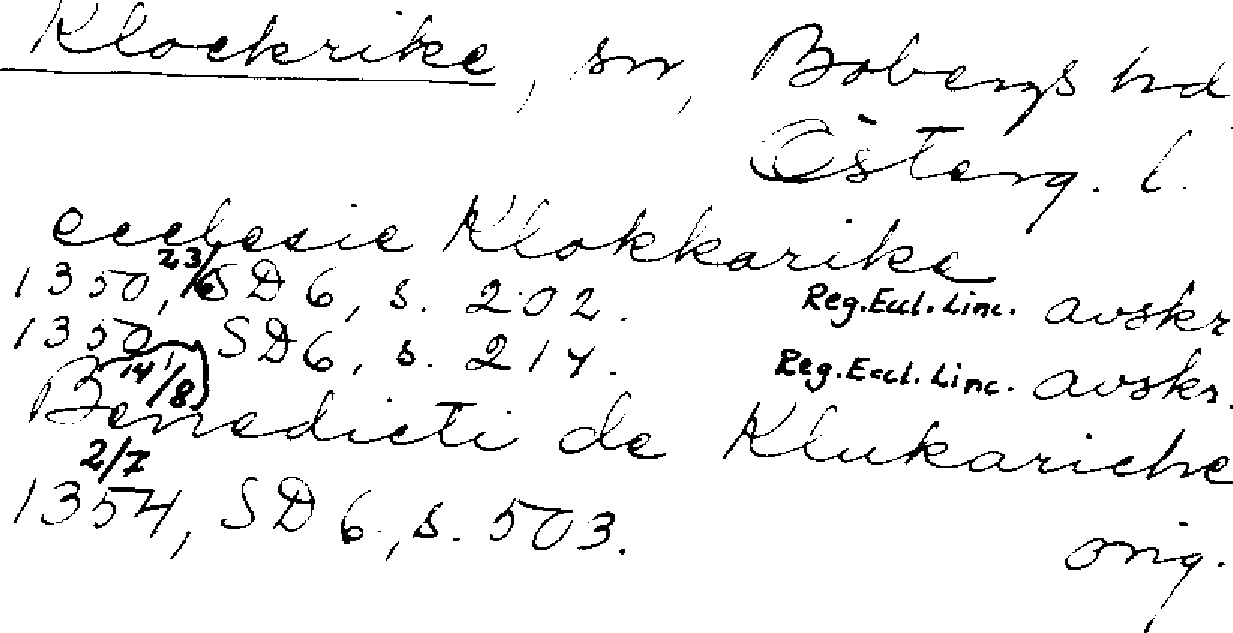 Klockrike, sn, Bobergs hd
Österg. l.
ecclesie Klokkarike
1350, 23/6 SD 6, s. 202. Reg. Eccl. Linc. avskr
1350 14/8 SD 6, s. 214. Reg. Eccl. Linc. avskr.
Benedicti de Klukariche
2/7
1354, SD 6, s. 503. orig.